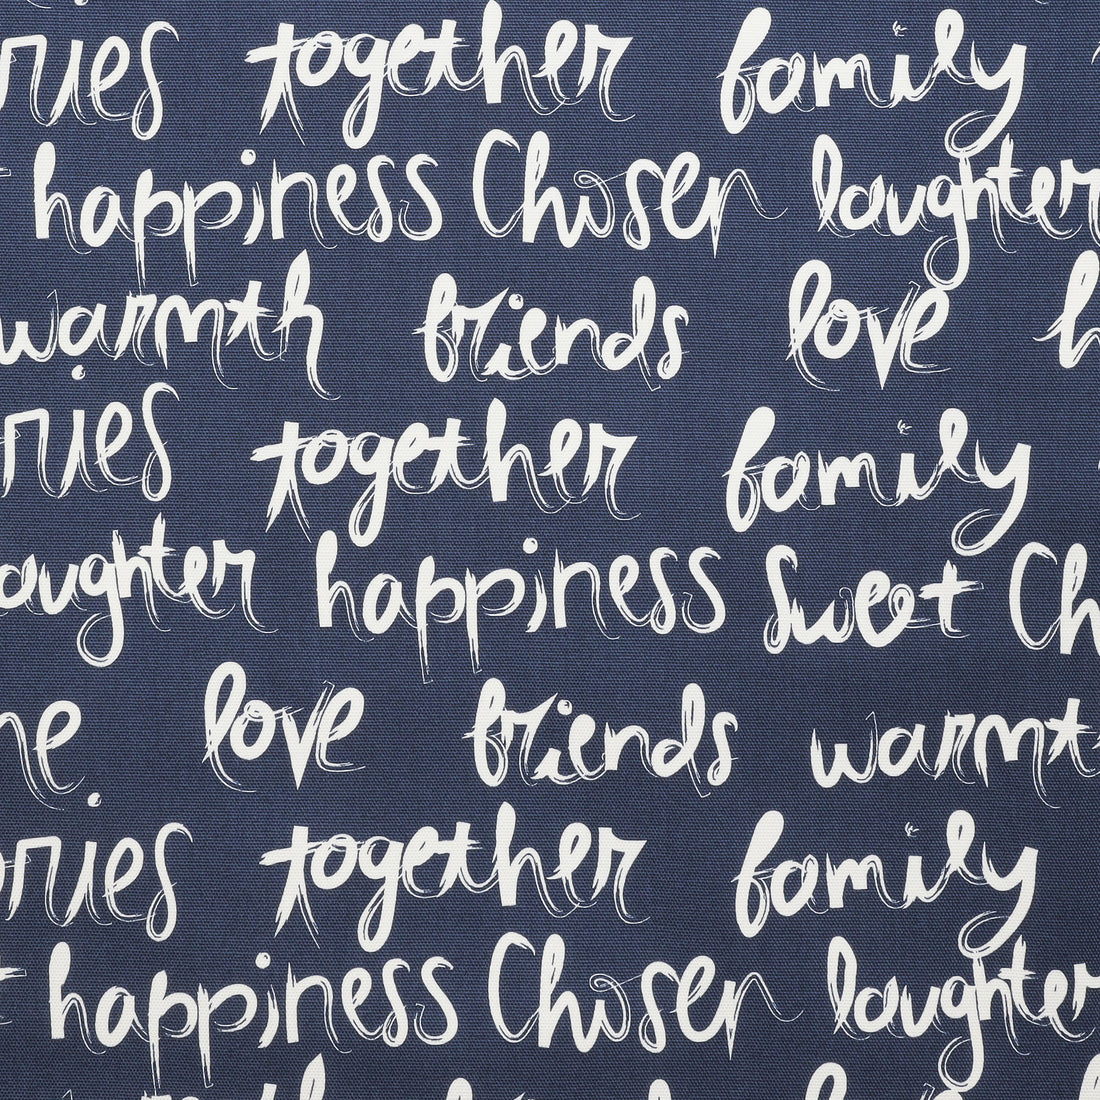 ries together family
happiness Chosen laughter
warmth friends love h
ries together family
aughter happiness Sweet Ch
me love friends warmt
ories together family
happiness Chosen laughter